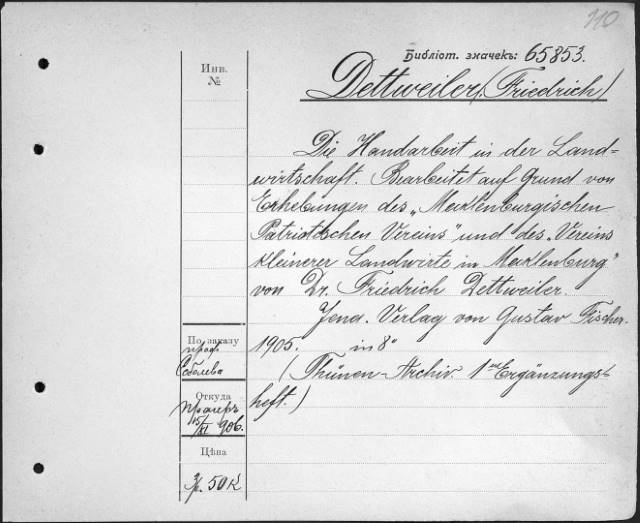 310
Библіот. значекъ: 65853.
Инв.
№
Dettweiler (Friedrich)
Die Handarbeit in der Land=
wirtschaft. Bearbeitet auf Grund von
Erhebungen des „Mecklenburgischen
Patriotischen Vereins" und des „Vereins
kleinerer Landwirte in Mecklenburg"
von Dr. Friedrich Dettweiler.
Jena. Verlag von Gustav Fischer.
1905. in 8°
(Thünen-Archiv. 1tes Ergänzungs=
heft.)
По заказу
проф.
Соболева
Откуда
15/XI 906.
Цѣна
50 K